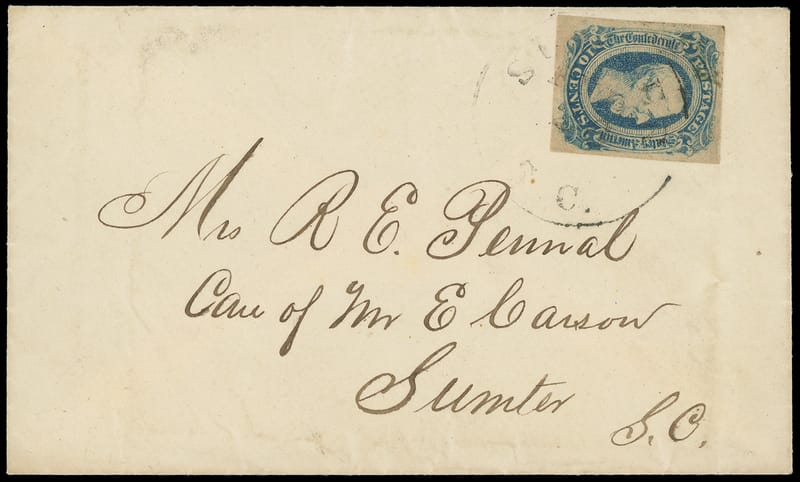 The Confederate
States of America
POSTAGE
10 CENTS
C.
Mrs R E. Pennal
Care of Mr E Carson
Sumter
S.C.